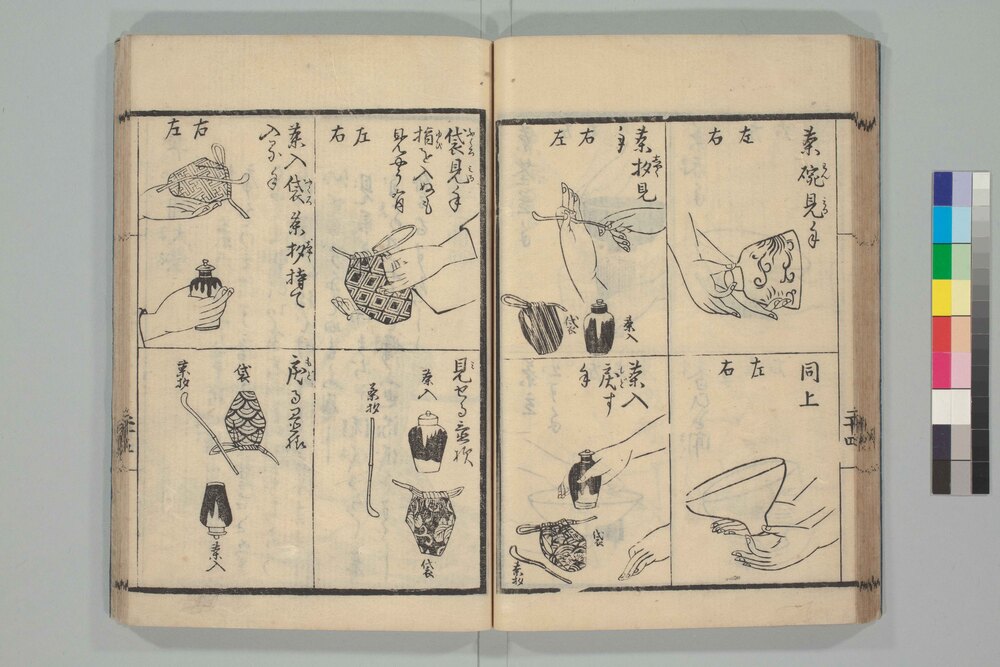 茶碗見る手
左
右
同上
左
右
茶杓見る
手
右
左
茶入
袋
茶入
戻す
手
袋
茶杓
袋見る手
指を入ぬも
見やう有
左
右
見せる置様
茶入
茶杓
袋
茶入袋茶杓持て
入る手
右
左
戻る置様
袋
茶杓
茶入